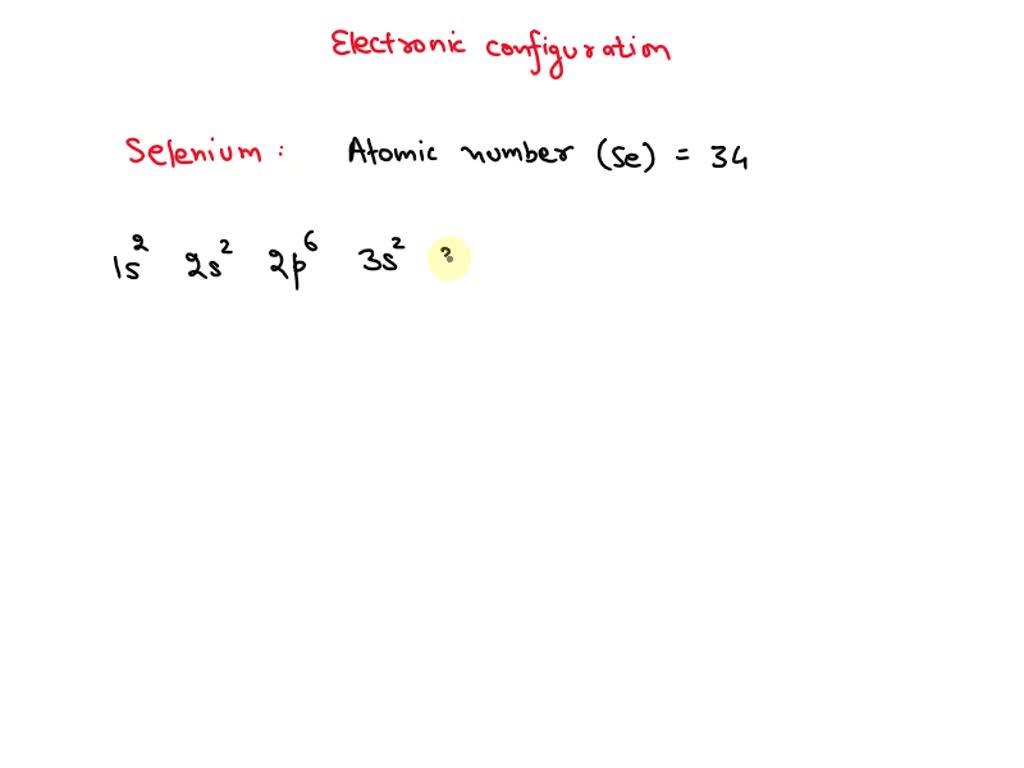 Electronic configuration
Selenium : Atomic number (Se) = 34
1s² 2s² 2p⁶ 3s² 3